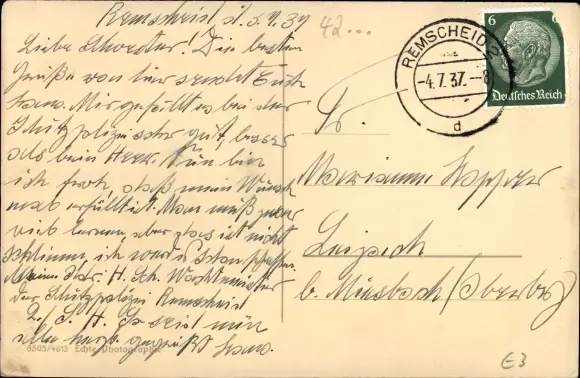 Remscheid d. 3.7.37
Liebe Schwester! Die besten
Grüße von hier sendet Euch
Hans. Mir gefällt es bei der
Schutzpolizei sehr gut, besser
als beim Heer. Nun bin
ich froh, daß mein Wunsch
erfüllt ist. Man muß zwar
viel lernen aber das ist nicht
schlimm, ich werde es schon schaffen.
Meine Adr. H. Sch. Wachtmeister
der Schutzpolizei Remscheid
2./S. H. So seid nun
alle herzl. gegrüßt Hans.
8505/4613 Echte Photographie
42...
REMSCHEID
-4.7.37.-8
d
6
6
Deutsches Reich
Fr.
Marianne
b. Miesbach/(Oberbay)
€3